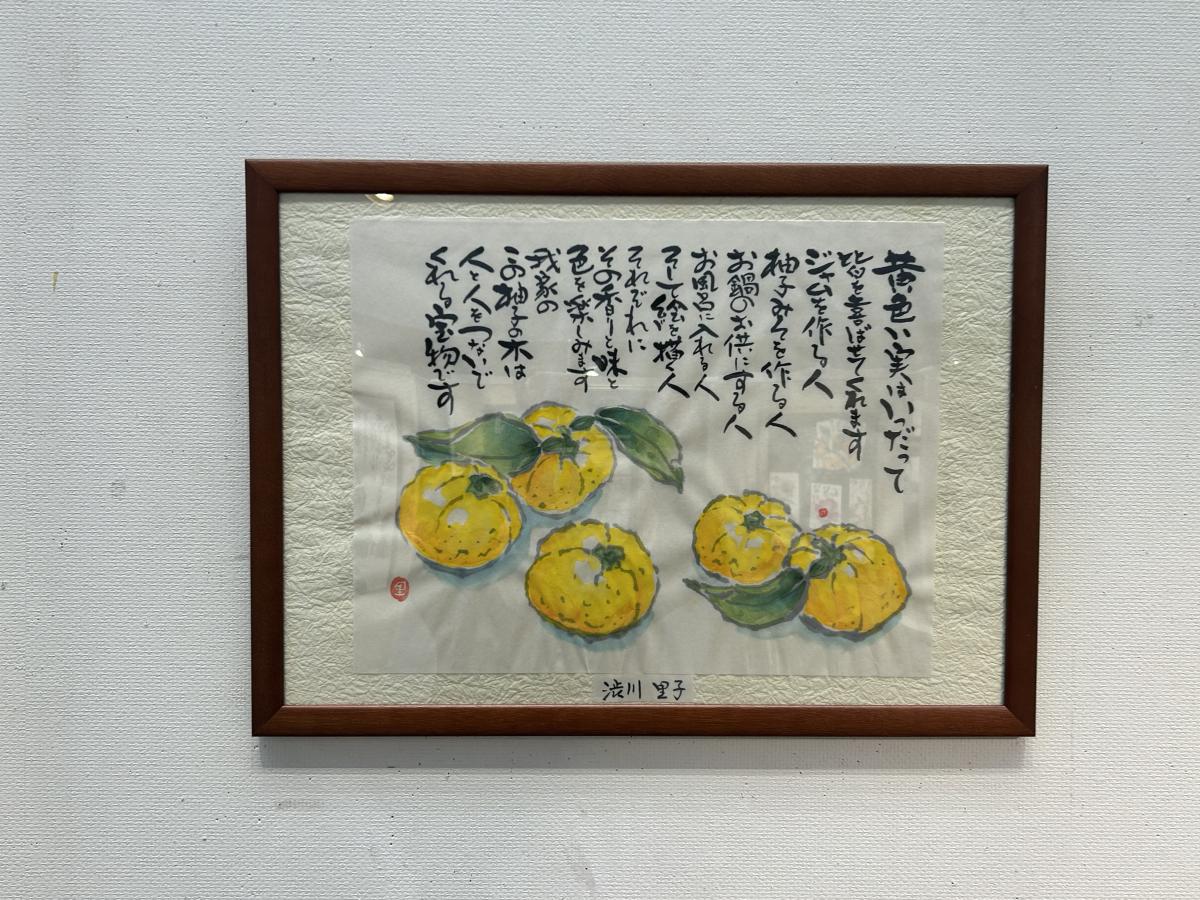 黄色い実はいつだって
皆を喜ばせてくれます
ジャムを作る人
柚子みそを作る人
お鍋のお供にする人
お風呂に入れる人
そして絵を描く人
それぞれに
その香りと味と
色を楽しみます
我家の
この柚子の木は
人と人をつないで
くれる宝物です
里
渋川 里子